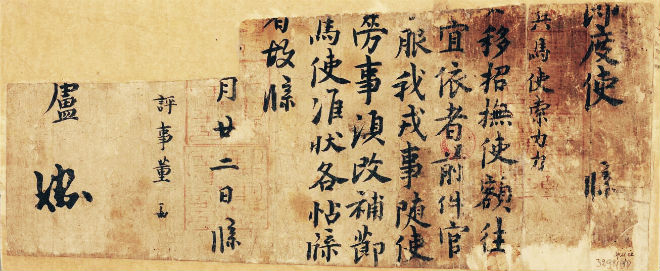 度使 牒
兵馬使索力力
移招撫使額往
宜依者前件官
服我戎事随使
勞事須改補節
馬使准狀各帖牒
者故牒
月廿二日牒
評事董
盧